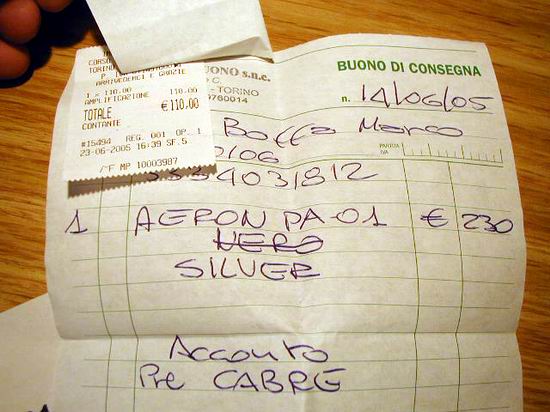 CORSO
TORINO
ARRIVEDERCI E GRAZIE
1 x 110.00 110.00
AMPLIFICAZIONE 110.00
TOTALE €110.00
CONTANTE
#15494 REG. 001 OP. 1
23-06-2005 16:39 SF.5
MP 10003987
BUONO DI CONSEGNA
UONO s.n.c.
C.
- TORINO
3760014
n. 14/06/05
Boffa Marco
PARTITA IVA
3334031812
1 AERON PA-01 € 230
NERO
SILVER
Acconto
Per CABRE